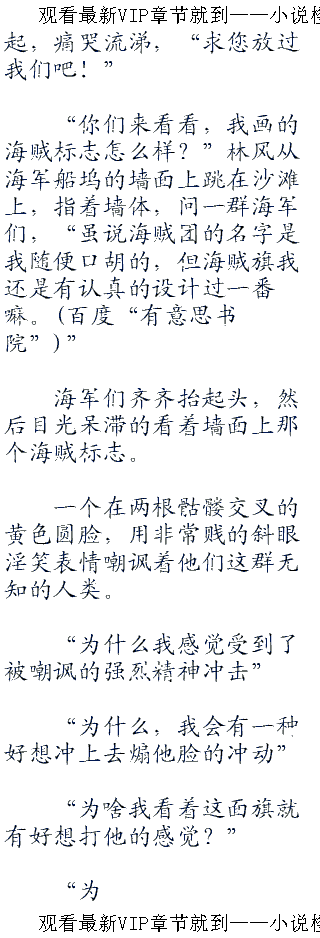 观看最新VIP章节就到——小说检
起，痛哭流涕，“求您放过
我们吧！”
“你们来看看，我画的
海贼标志怎么样？”林风从
海军船坞的墙面上跳在沙滩
上，指着墙体，问一群海军
们，“虽说海贼团的名字是
我随便口胡的，但海贼旗我
还是有认真的设计过一番
嘛。(百度“有意思书
院”)”
海军们齐齐抬起头，然
后目光呆滞的看着墙面上那
个海贼标志。
一个在两根骷髅交叉的
黄色圆脸，用非常贱的斜眼
淫笑表情嘲讽着他们这群无
知的人类。
“为什么我感觉受到了
被嘲讽的强烈精神冲击”
“为什么，我会有一种
好想冲上去煽他脸的冲动”
“为啥我看着这面旗就
有好想打他的感觉？”
“为
观看最新VIP章节就到——小说检